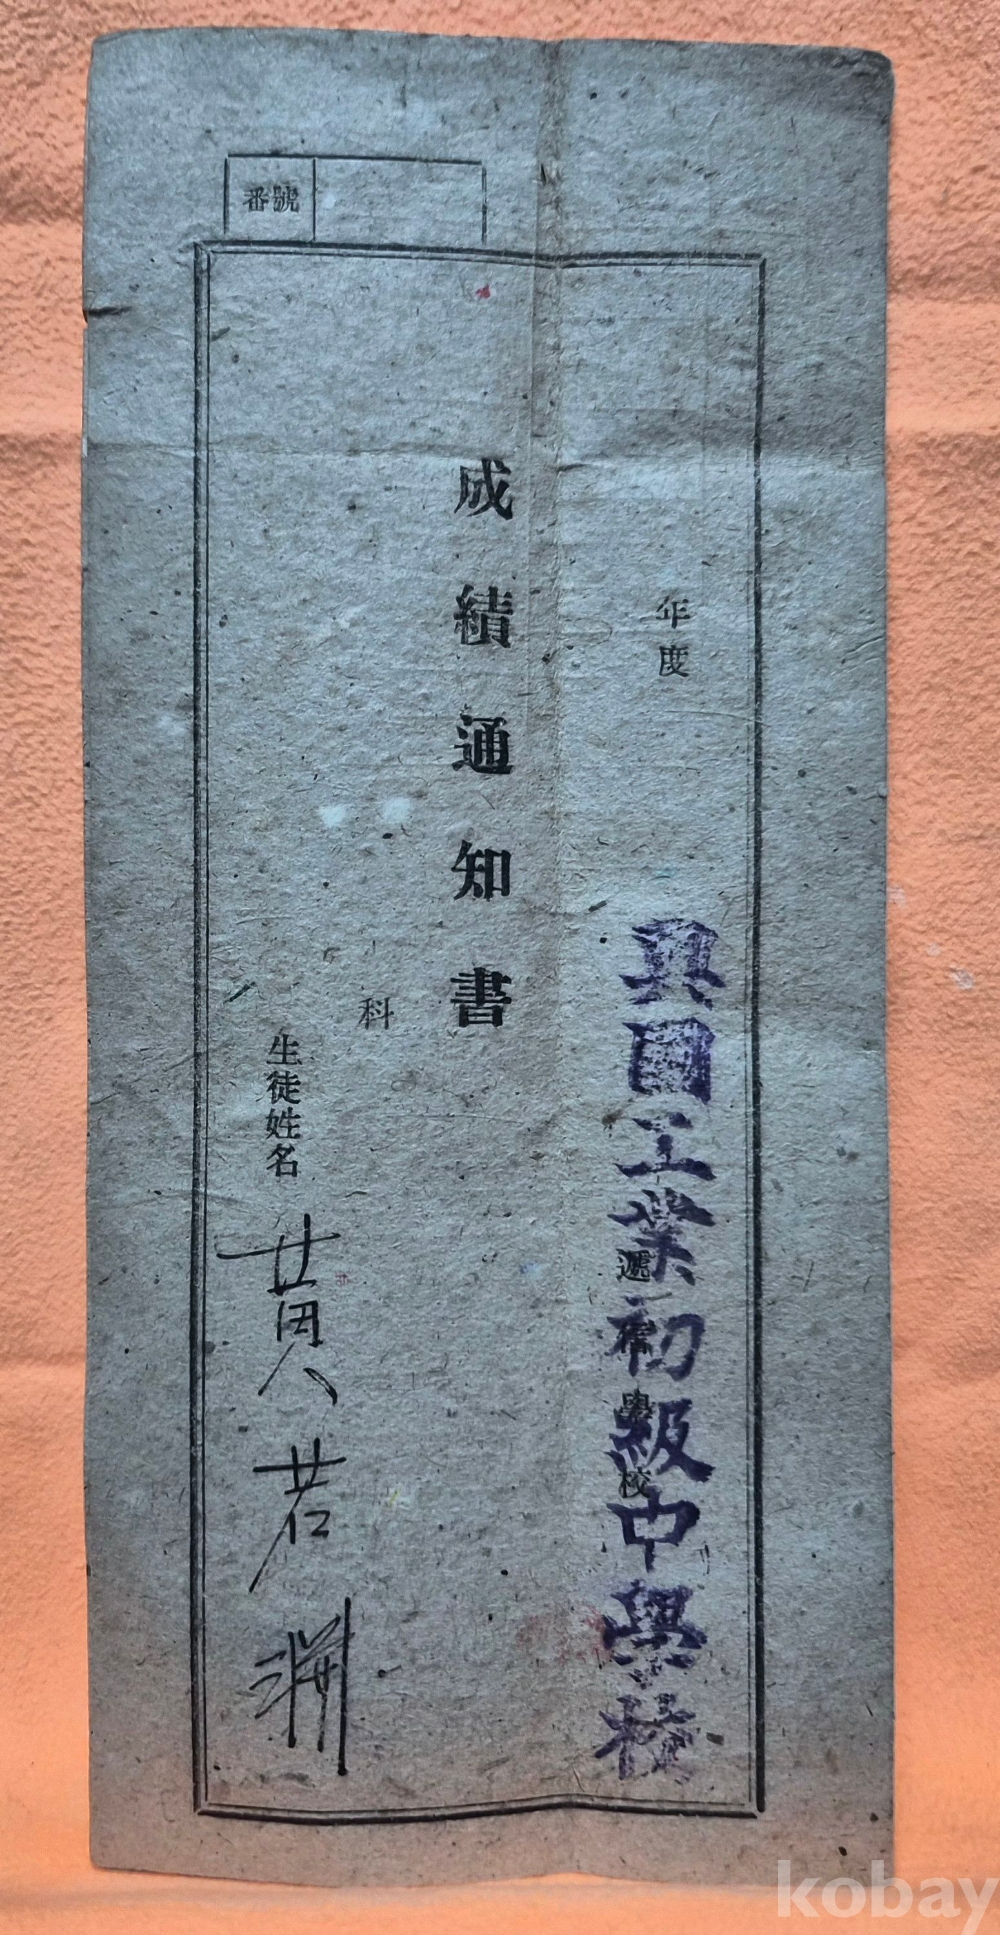 番號
年度
興國工業初級中學校
遞信學校
成績通知書
科
生徒姓名 黃君淵
kobay